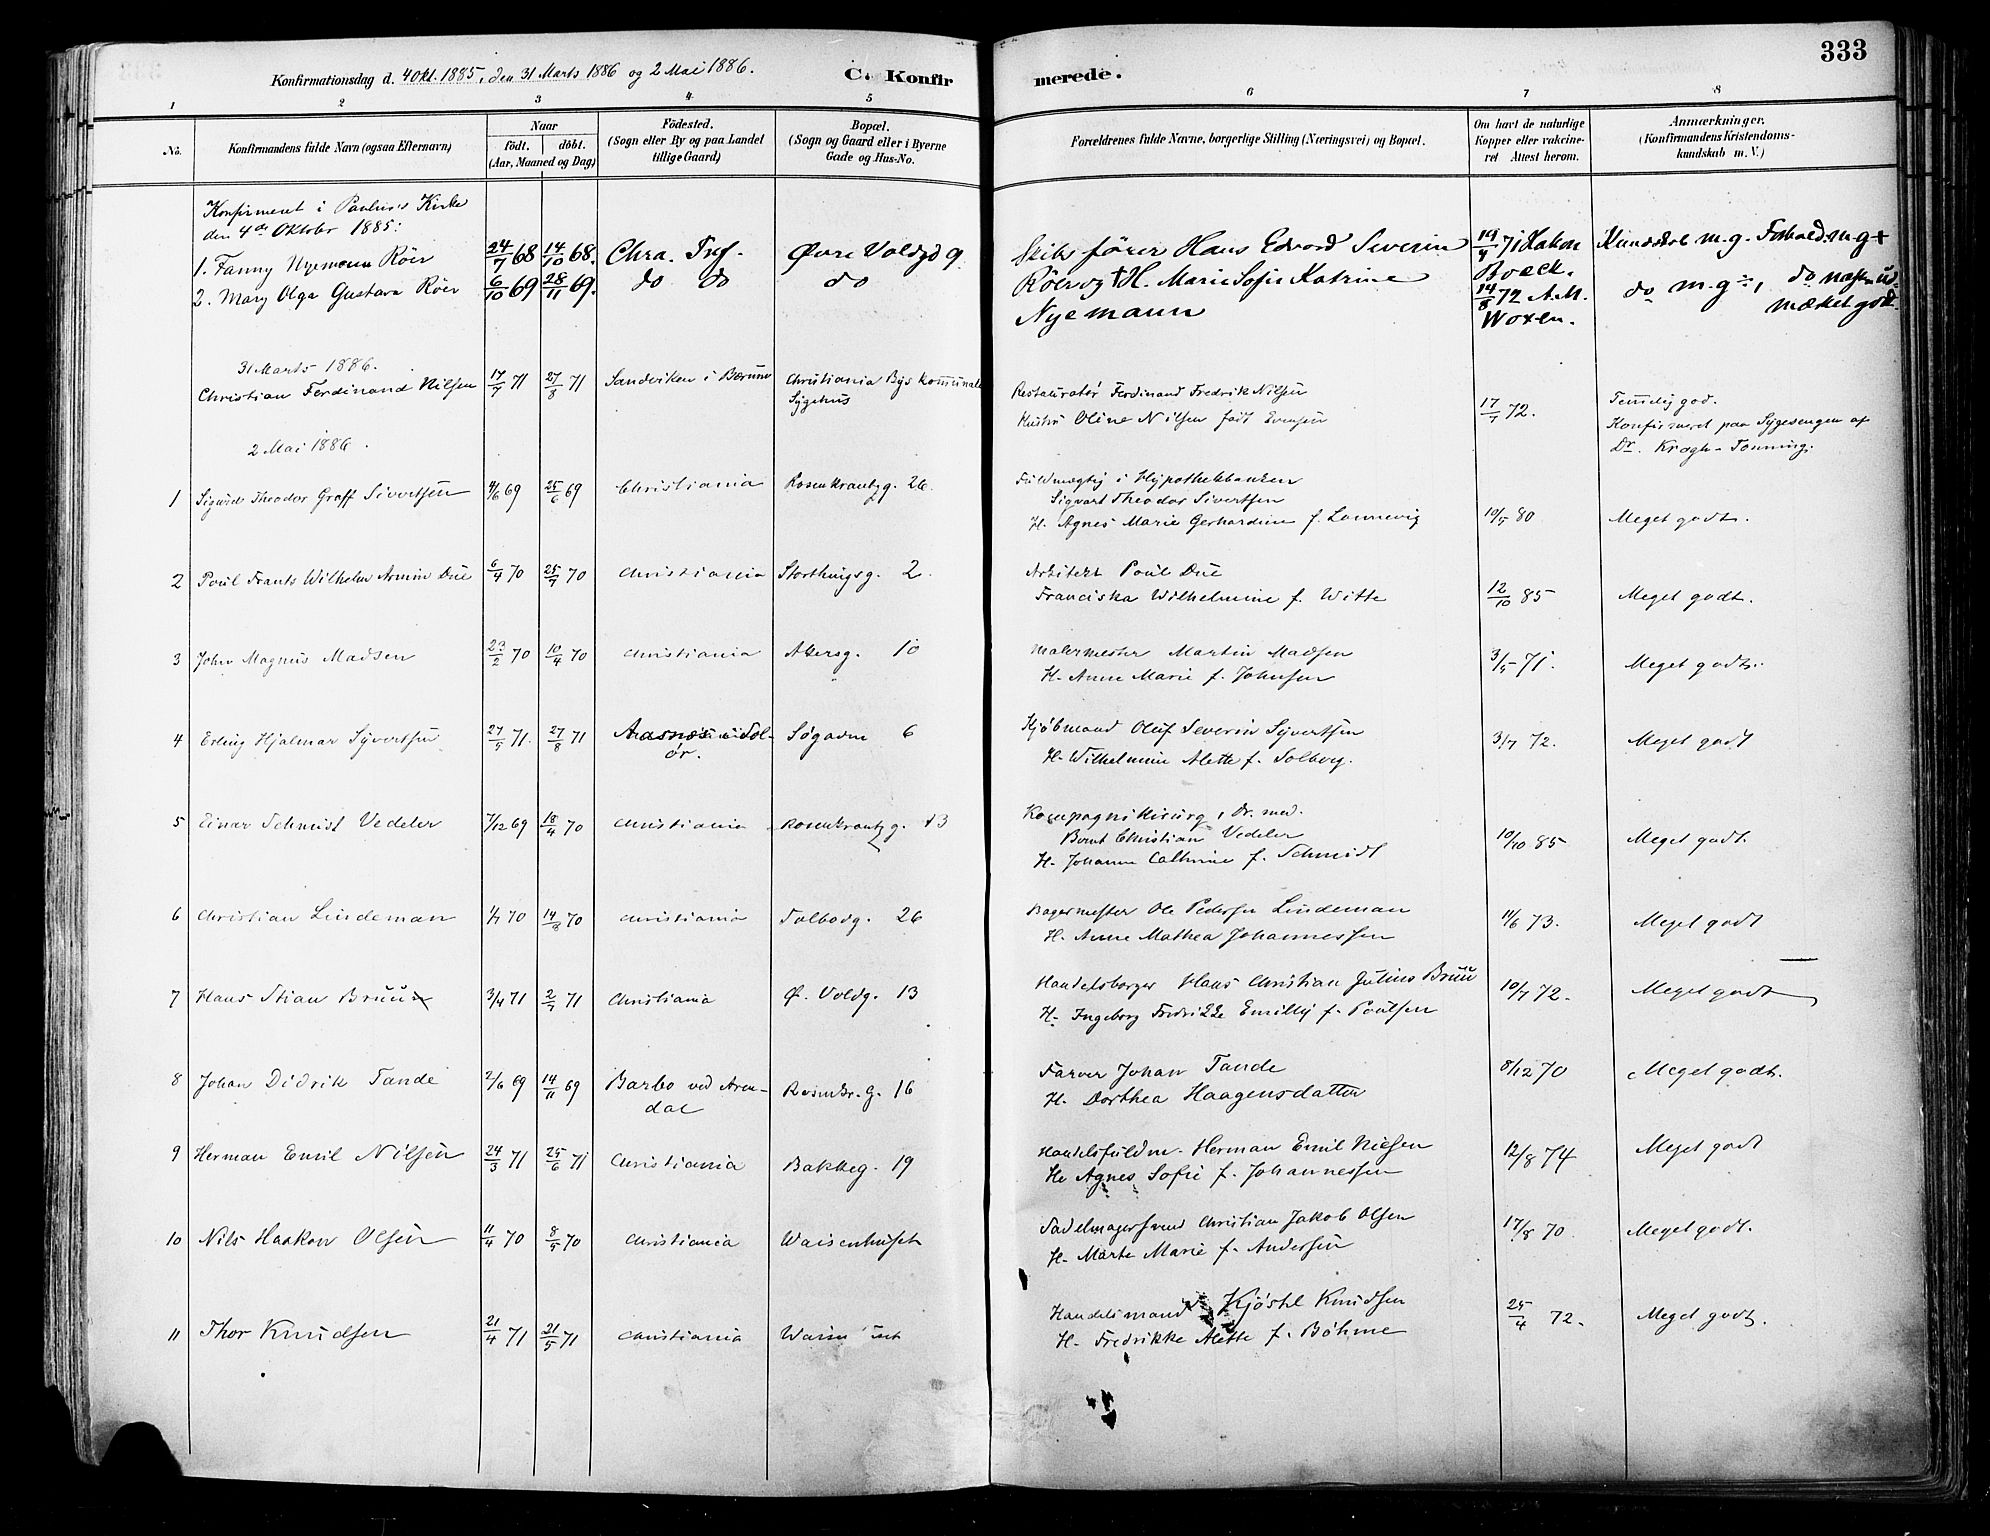 333
Konfirmationsdag d. 4 Okt. 1885, den 31 Marts 1886 og 2 Mai 1886.
C. Konfirmerede.
1 2 3 4 5 6 7 8
No.
Konfirmandens fulde Navn (ogsaa Efternavn)
Naar
födt. döbt.
(Aar, Maaned og Dag)
Födested.
(Sogn eller By og paa Landet
tillige Gaard)
Bopæl.
(Sogn og Gaard eller i Byerne
Gade og Hus-No.
Forældrenes fulde Navne, borgerlige Stilling (Næringsvei) og Bopæl.
Om havt de naturlige
Kopper eller vakcine-
ret Attest herom.
Anmærkninger.
(Konfirmandens Kristendoms-
kundskab m. V.)
Konfirmeret i Paulus's Kirke
den 4de Oktober 1885:
1. Fanny Nyemann Röer 24/7 68 14/10 68. Chra. Övre Voldgd 9
2. Mary Olga Gustava Röer 6/10 69 28/11 69. do do do
Skibsfører Hans Edvard Severin
Röer og † H. Marie Sofie Katrine
Nyemann
19/4 71 Hakon
Boeck.
14/8 72 A.M.
Woxen.
Kundskab m.g. Forhold m.g+
do m.g÷, do
mæket godt
31 Marts 1886.
Christian Ferdinand Nilsen 17/7 71 27/8 71 Sandviken i Bærum Christiania Bys kommunale
Sygehus
Restauratør Ferdinand Fredrik Nilsen
Hustru Oline Nilsen født Evensen
17/7 72.
Temlig god.
Konfirmeret paa Sygesengen af
Dr. Krogh-Tonning.
2 Mai 1886.
1 Sigurd Theodor Graff Sivertsen 4/6 69 25/6 69 Christiania Rosenkrantzg. 26.
Fuldmægtig i Hypothekbanken
Sigvart Theodor Sivertsen
H. Agnes Marie Gerhardine f. Lannevig 10/5 80 Meget godt.
2 Poul Frants Wilhelm Armin Due 6/4 70 25/7 70 Christiania Storthingsg. 2.
Arkitekt Poul Due
Franciska Wilhelmine f. Witte 12/10 85 Meget godt.
3 John Magnus Madsen 23/2 70 10/4 70 Christiania Akersg. 10
Malermester Martin Madsen
H. Anne Marie f. Johnsen 3/5 71. Meget godt.
4 Erling Hjalmar Syvertsen 27/5 71. 27/8 71 Aasnes i Sol-
ør. Søgaden 6
Kjøbmand Oluf Severin Syvertsen
H. Wilhelmine Alette f. Solberg. 3/7 72. Meget godt
5 Einar Schmidt Vedeler 7/12 69 18/4 70 Christiania Rosenkrantzg. 13
Kompagnikirurg, Dr. med.
Bernt Christian Vedeler
H. Johanne Cathrine f. Schmidt 10/10 85 Meget godt.
6 Christian Lindeman 1/7 70 14/8 70 Christiania Tolbodg. 26
Bagermester Ole Pedersen Lindeman
H. Anne Mathea Johannessen 11/6 73. Meget godt
7 Hans Stian Bruun 3/4 71 2/7 71 Christiania Ø. Voldg. 13
Handelsborger Hans Christian Julius Bruu
H. Ingeborg Fredrikke Emilly f. Poulsen 10/7 72. Meget godt
8 Johan Didrik Tande 2/6 69 14/11 69 Barbo ved Aren-
dal Rosenkr. G. 16
Farver Johan Tande
H. Dorthea Haagensdatter 8/12 70 Meget godt.
9 Herman Emil Nilsen 24/3 71 25/6 71 Christiania Bakkeg. 19
Handelsfuldm. Herman Emil Nielsen
H. Agnes Sofie f. Johannessen 12/8 74 Meget godt
10 Nils Haakon Olsen 11/4 70 8/5 70 Christiania Waisenhuset
Sadelmagersvend Christian Jakob Olsen
H. Marte Marie f. Andersen 17/8 70 Meget godt.
11 Thor Knudsen 21/4 71 21/5 71 Christiania
Handelsmand Kjøstel Knudsen
H. Fredrikke Alette f. Böhme 25/4 72. Meget godt.